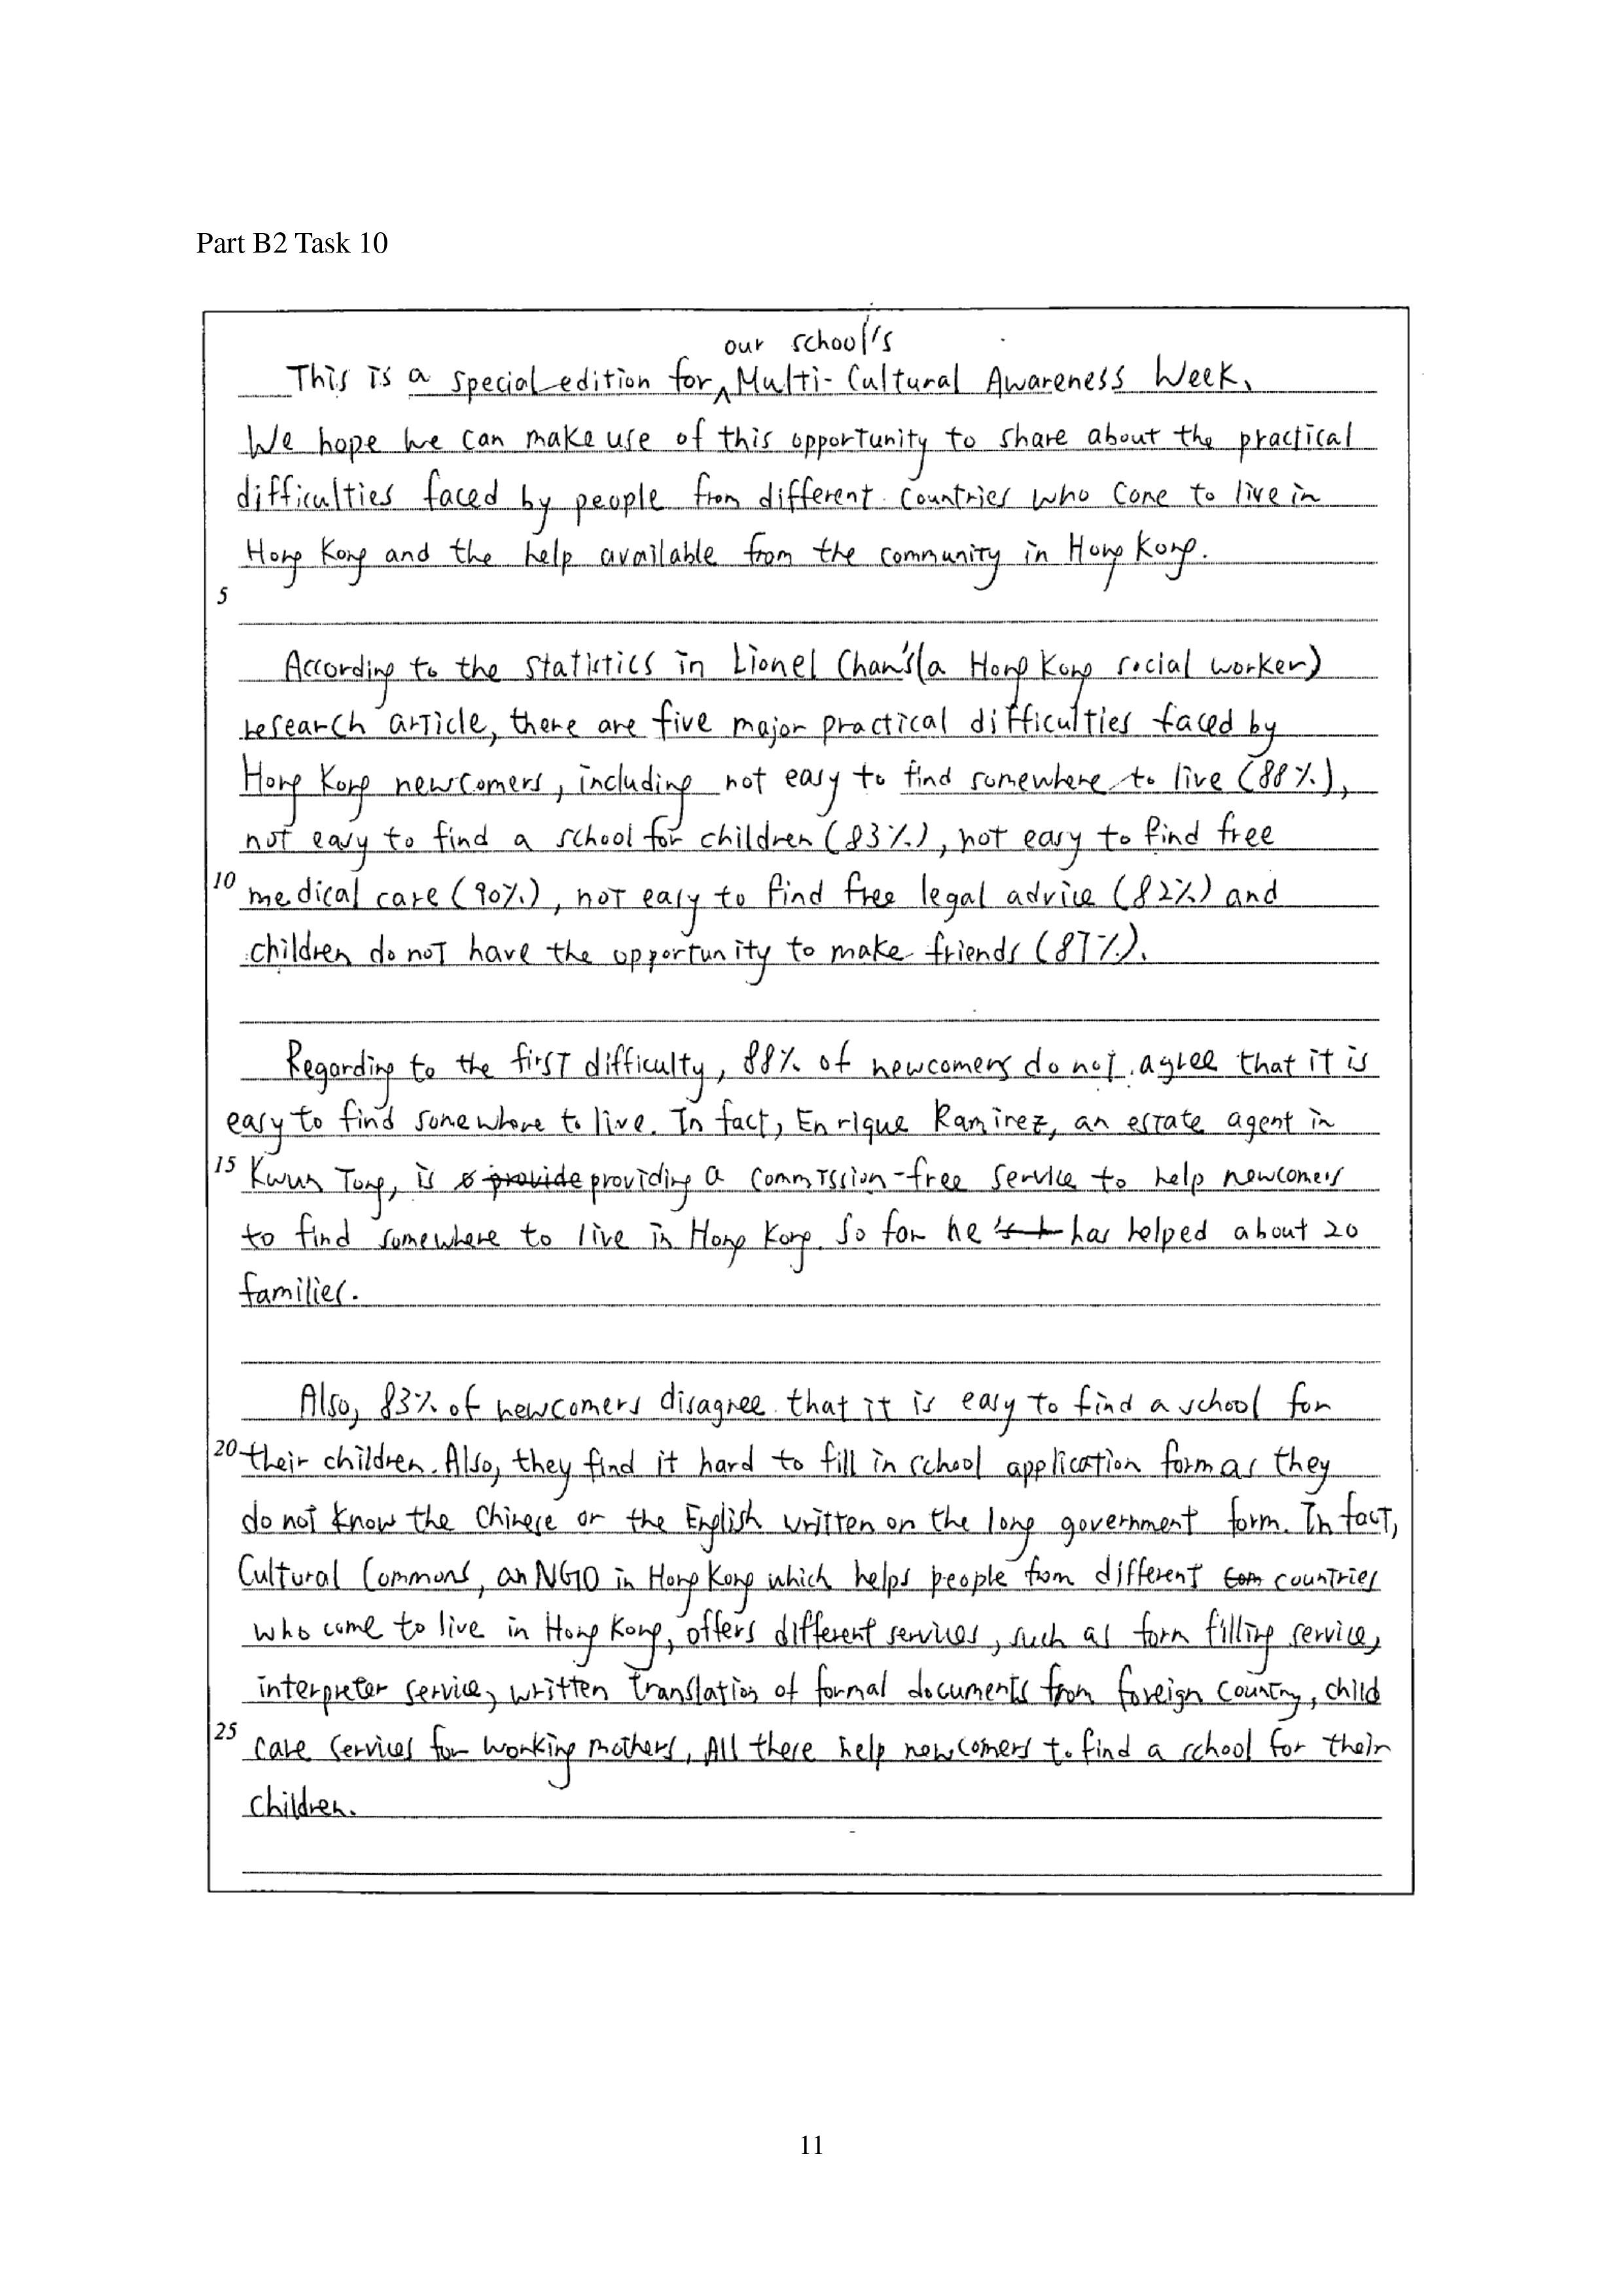 Part B2 Task 10
our school's
This is a special edition for ^ Multi-Cultural Awareness Week.
We hope we can make use of this opportunity to share about the practical
difficulties faced by people from different countries who come to live in
Hong Kong and the help available from the community in Hong Kong.
5
According to the statistics in Lionel Chan's(a Hong Kong social worker)
research article, there are five major practical difficulties faced by
Hong Kong newcomers, including not easy to find somewhere to live (88%),
not easy to find a school for children (83%), not easy to find free
10 medical care (90%), not easy to find free legal advice (82%) and
children do not have the opportunity to make friends (87%).
Regarding to the first difficulty, 88% of newcomers do not agree that it is
easy to find somewhere to live. In fact, Enrique Ramirez, an estate agent in
15 Kwun Tong, is provide providing a commission-free service to help newcomers
to find somewhere to live in Hong Kong. So far he has helped about 20
families.
Also, 83% of newcomers disagree that it is easy to find a school for
20 their children. Also, they find it hard to fill in school application form as they
do not know the Chinese or the English written on the long government form. In fact,
Cultural Commons, an NGO in Hong Kong which helps people from different com countries
who come to live in Hong Kong, offers different services, such as form filling service,
interpreter service, written translation of formal documents from foreign country, child
25 care services for working mothers. All these help newcomers to find a school for their
children.
11